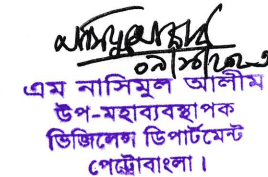 এম নাসিমুল আলীম
উপ-মহাব্যবস্থাপক
ভিজিলেন্স ডিপার্টমেন্ট
পেট্রোবাংলা।